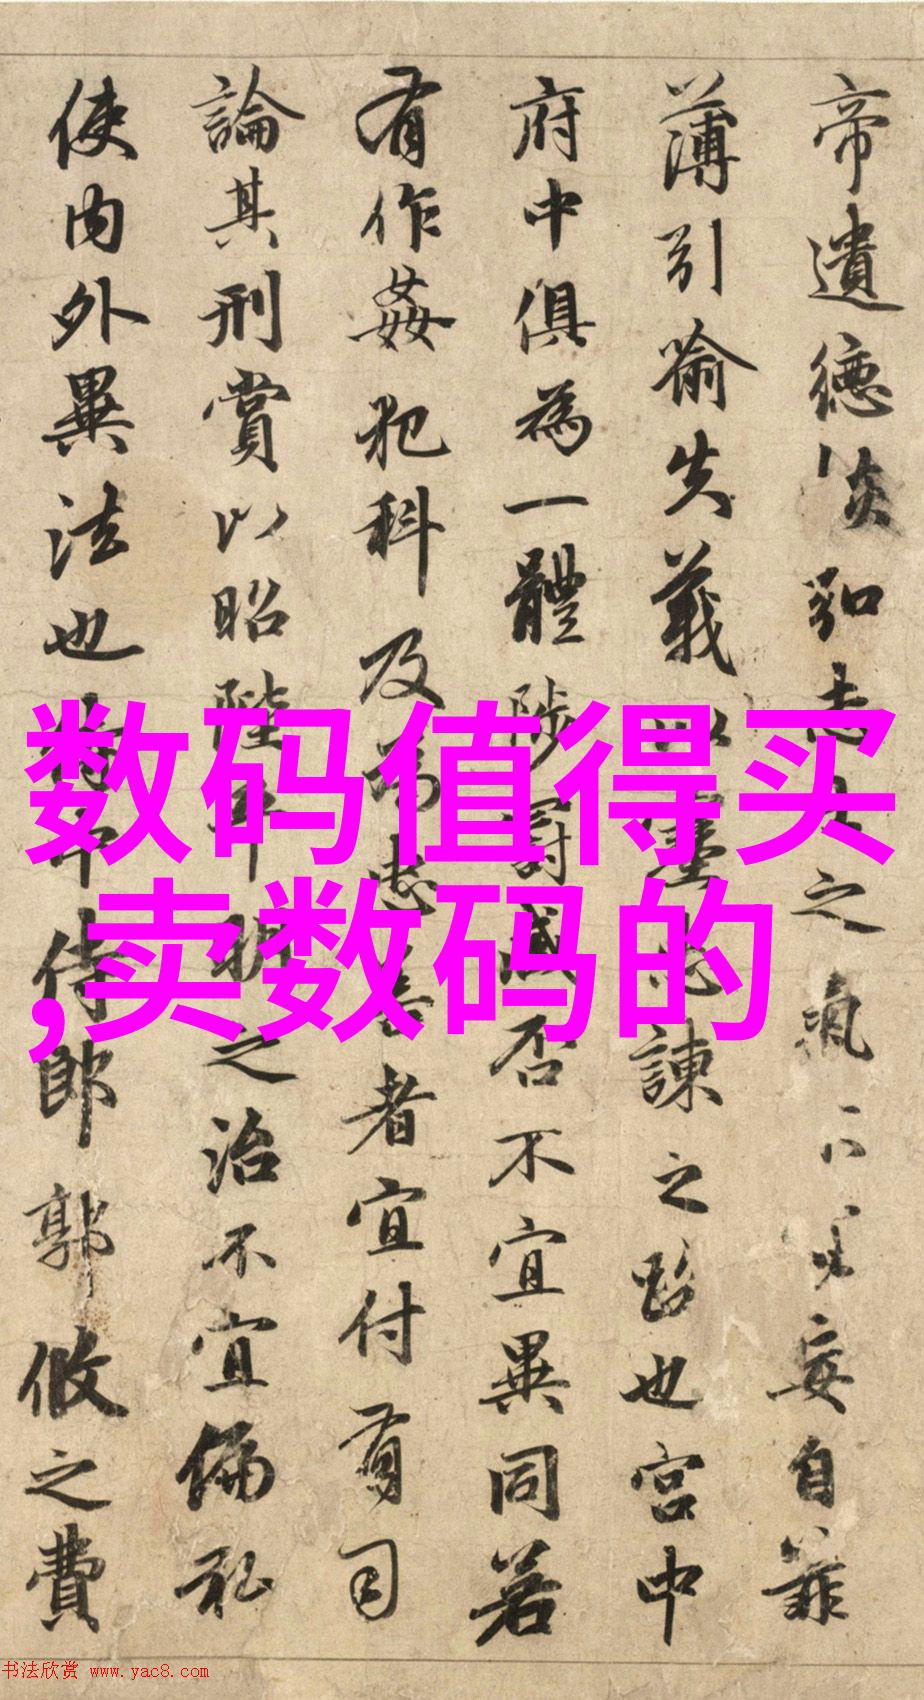 帝遺德恢弘志士之氣不宜妄自菲
薄引喻失義以塞忠諫之路也宮中
府中俱為一體陟罰臧否不宜異同若
有作姦犯科及為忠善者宜付有司
論其刑賞以昭陛平明之治不宜偏私
使內外異法也侍中侍郎郭攸之費
数码值得买
,卖数码的
书法欣赏 www.yac8.com